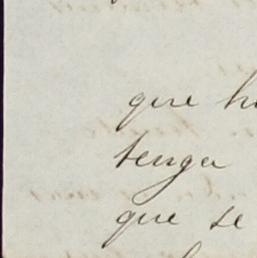 que h
tenga
que se